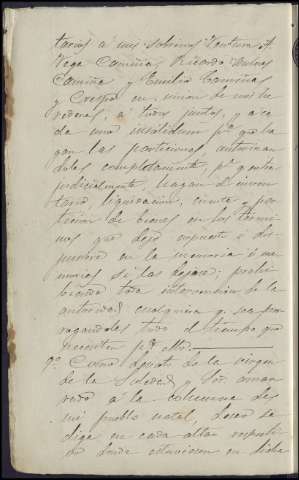 tarios á mis sobrinos Ventura A
Vega Camiña, Ricardo
Camiña y Emilio Camiñas
y Crespo en union de mis he
rederos, á todos juntos, y á ca
da uno insolidum pª que ha
gan las particiones, autorizan
dolos completamente, pª q extra
judicialmente hagan el inven
tario, liquidacion, cuenta y par
ticion de bienes en los térmi
nos que dejo espuesto y dis
pusiere en la memoria ó me
morias si las dejare; prohi
biendo toda intervencion de la
autoridad cualquiera q sea pro
rrogandoles todo el tiempo que
necesiten pª ello.
9º Como devoto de la virgen
de la Soledad y Sor amar
rado á la columna de
mi pueblo natal, deseo se
diga en cada altar respecti
vo donde estuviesen en dicha